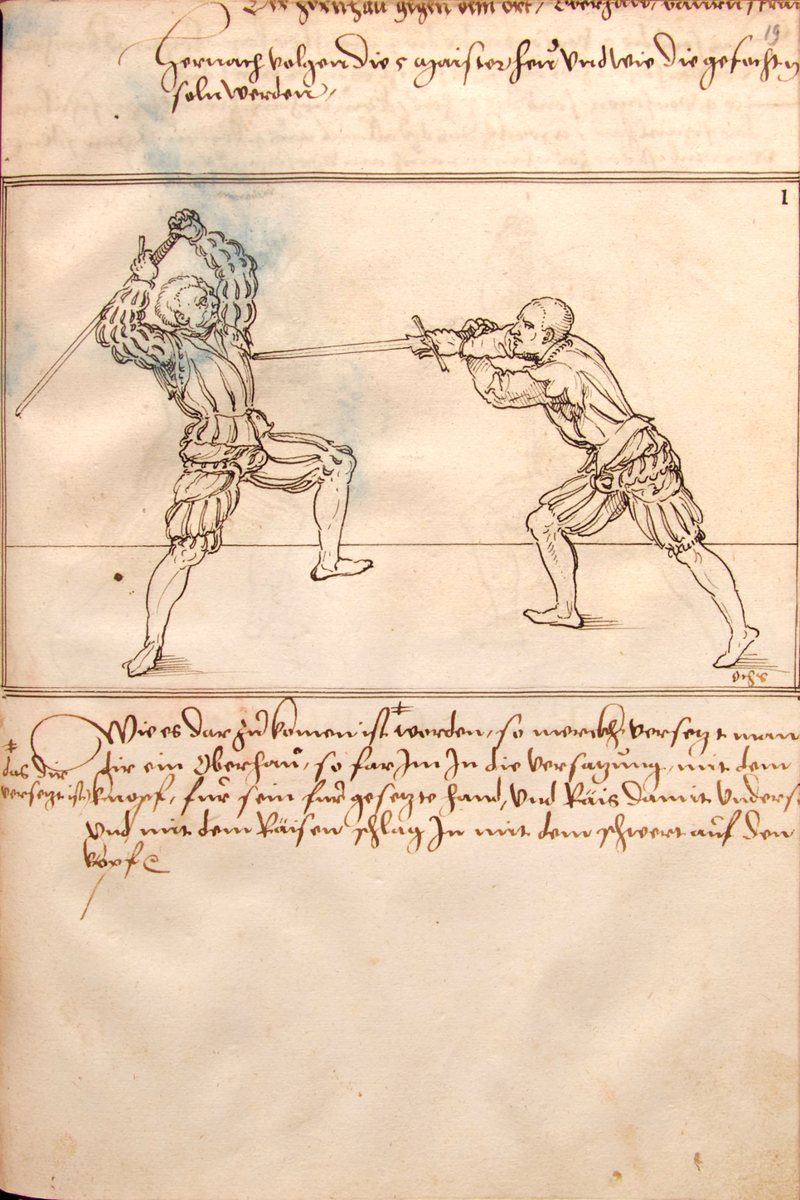 Die zwenhau gegen dem ort / Oberhau /
19
Hernach volgen die 5 Maister heu Vnd wie die gefochtn
soln werden /
1
Ochs
Wie es dar zu komen ist ⸗ worden / so merckh versetzt man
dir ein Oberhau / so far Im In die versatzung mit dem
knopf / fur sein fur gesetzte hand / Vnd Räis damit Unders
Vnd mit dem Räisen schlag In mit dem schwert auf den
kopf
⸗ das dir
versetzt ist